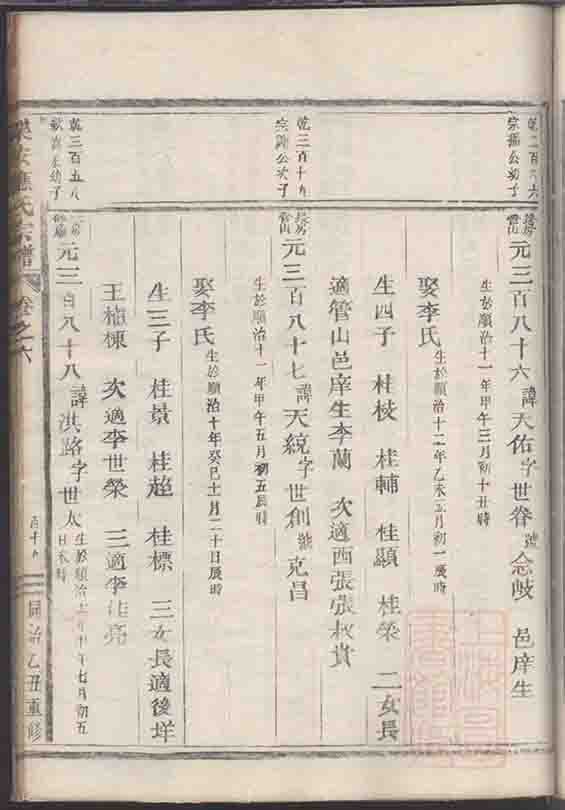 乾二百六六
宗獅公幼子
元三百八十六諱天佑字世眷號念岐 邑庠生
生於順治十一年甲午三月初十丑時
娶李氏生於順治十二年乙未五月初一辰時
生四子 桂枝 桂輔 桂顯 桂榮 二女長
適管山邑庠生李蘭 次適西張張叔貴
乾三百十九
管山
元三百八十七諱天統字世創號克昌
生於順治十一年甲午五月初五辰時
娶李氏生於順治十年癸巳十一月二十日辰時
生三子 桂景 桂超 桂標 三女長適後垟
王楦棟 次適李世榮 三適李 亮
乾三百五八
元三百八十八諱洪路字世太生於順治 年 七月初五
日未時
氏宗譜 卷之六 百十九 同治乙丑重修